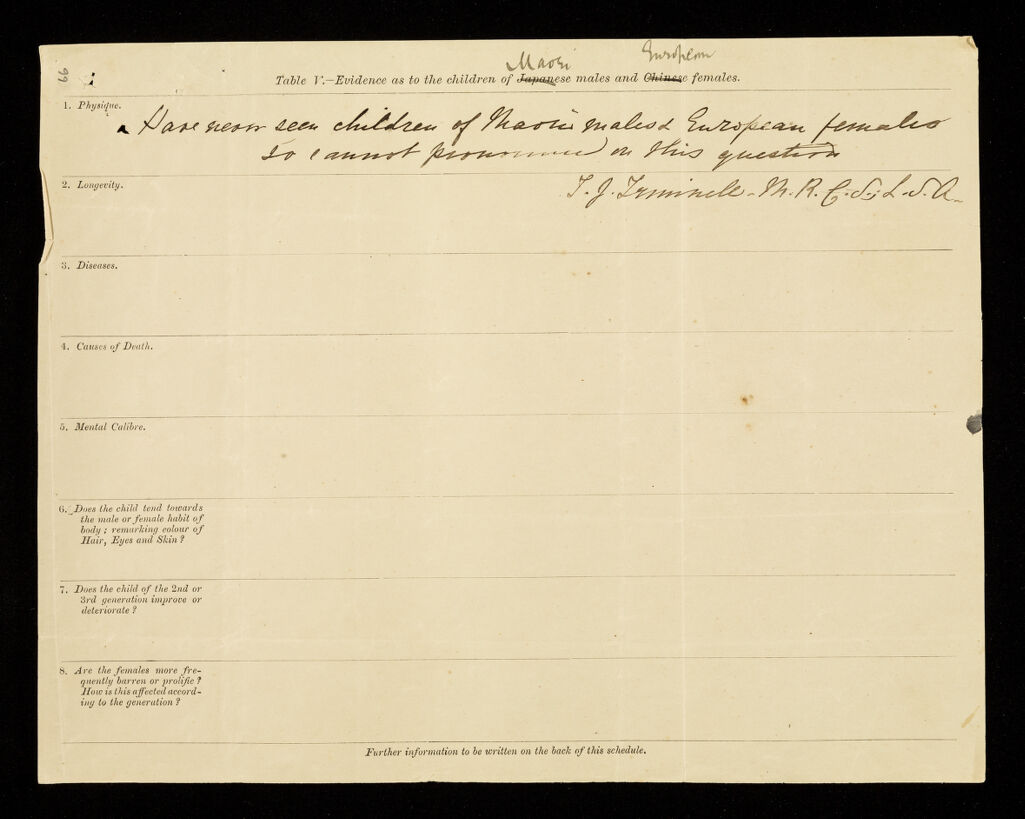 99
Maori European
Table V.—Evidence as to the children of Japanese males and Chinese females.
1. Physique.
Have never seen children of Maorie males & European females
so cannot pronounce on this question
2. Longevity.
T. J. M. R. C. S.; L. S. A.
3. Diseases.
4. Causes of Death.
5. Mental Calibre.
6. Does the child tend towards
the male or female habit of
body; remarking colour of
Hair, Eyes and Skin?
7. Does the child of the 2nd or
3rd generation improve or
deteriorate?
8. Are the females more fre-
quently barren or prolific?
How is this affected accord-
ing to the generation?
Further information to be written on the back of this schedule.